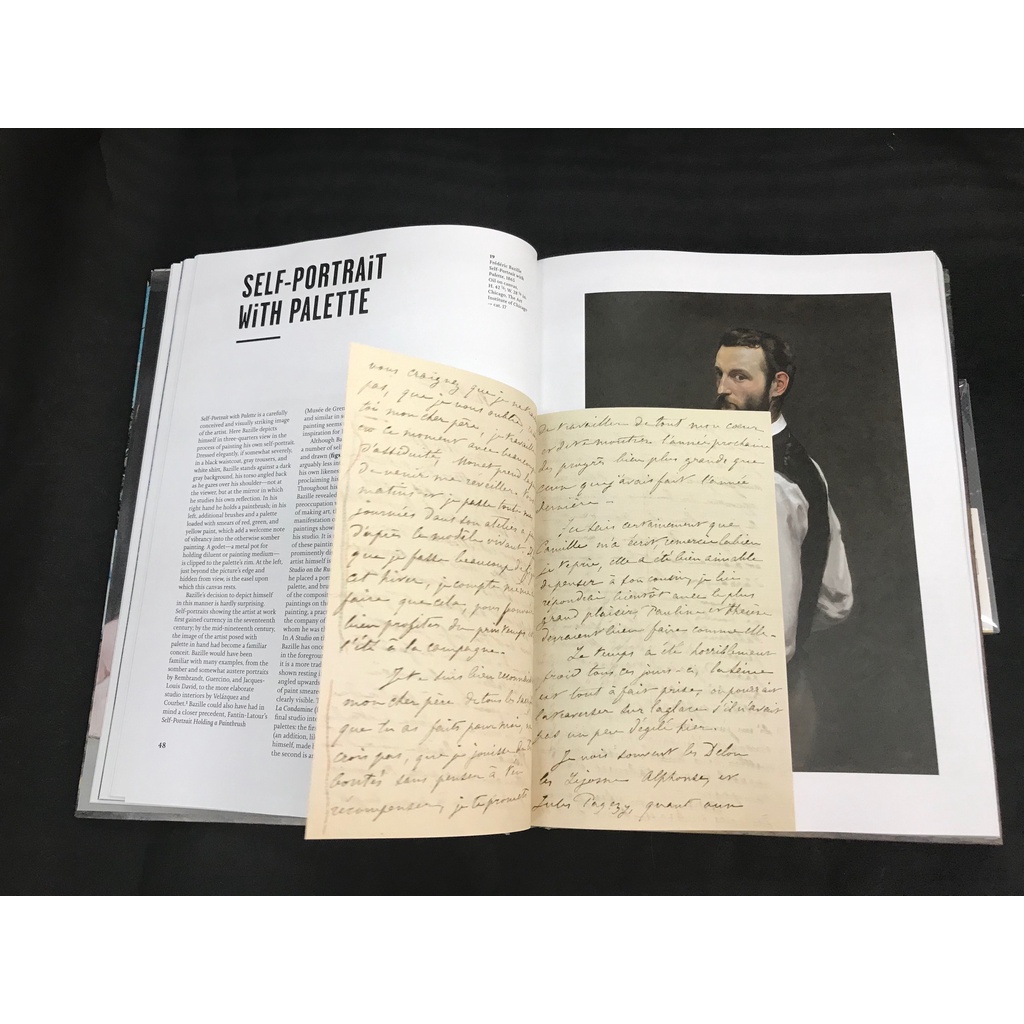 SELF-PORTRAiT
WiTH PALETTE
19
Frédéric Bazille
Self-Portrait with
Palette, 1865
Oil on canvas,
Chicago, The Art
Institute of Chicago
— cat. 17
Self-Portrait with Palette is a carefully
conceived and visually striking image
of the artist. Here Bazille depicts
himself in three-quarters view in the
process of painting his own self-portrait.
Dressed elegantly, if somewhat severely,
in a black waistcoat, gray trousers, and
white shirt, Bazille stands against a dark
gray background, his torso angled back
as he gazes over his shoulder—not at
the viewer, but at the mirror in which
he studies his own reflection. In his
right hand he holds a paintbrush; in his
left, additional brushes and a palette
loaded with smears of red, green, and
yellow paint, which add a welcome note
of vibrancy into the otherwise somber
painting. A godet—a metal pot for
holding diluent or painting medium—
is clipped to the palette's rim. At the left,
just beyond the picture's edge and
hidden from view, is the easel upon
which this canvas rests.
Bazille's decision to depict himself
in this manner is hardly surprising.
Self-portraits showing the artist at work
first gained currency in the seventeenth
century; by the mid-nineteenth century,
the image of the artist posed with
palette in hand had become a familiar
conceit. Bazille would have been
familiar with many examples, from the
somber and somewhat austere portraits
by Rembrandt, Guercino, and Jacques-
Louis David, to the more elaborate
studio interiors by Velázquez and
Courbet. Bazille could also have had in
mind a closer precedent, Fantin-Latour's
Self-Portrait Holding a Paintbrush
48
(Musée de Gren
and similar in s
painting seems
inspiration for
Although Ba
a number of sel
and drawn (fig
arguably less int
his own likenes
proclaiming his
Throughout his
Bazille revealed
preoccupation
of making art,
manifestation o
paintings show
his studio. It is
of these paintin
prominently di
artist himself i
Studio on the Ru
he placed a port
palette, and bru
of the composit
paintings on th
painting, a prac
the company of
whom he was th
In A Studio on th
Bazille has once
in the foregroun
it is a more trad
shown resting
angled upwards
of paint smeare
clearly visible. T
La Condamine (
final studio inter
palettes: the firs
(an addition, lik
himself, made b
the second is an
vous craignez que je ne
pas, que je vous oublie,
toi mon cher père, je travaille
en ce moment avec beaucoup
d'assiduité, Monet prend la
de venir me réveiller
matins et je passe toutes mes
journées dans son atelier à
d'après le modèle vivant.
que je fasse beaucoup de
cet hiver, je compte même
faire que cela, pour pouvoir
bien profiter du printemps
l'été à la campagne.
Je te suis bien reconnaissant
mon cher père de tous les
que tu as faits pour moi,
crois pas, que je jouisse de tes
bontés sans penser à t'en
récompenser, je te promets
de travailler de tout mon cœur
et de te montrer l'année prochaine
des progrès bien plus grands que
ceux que j'avais fait l'année
dernière.
certainement que
Camille m'a écrit remercie la bien
je te prie, elle a été bien aimable
de penser à son cousin, je lui
répondrai bientôt avec le plus
grand plaisir, Pauline et Thérèse
devraient bien faire comme elle.
Le temps a été horriblement
froid tous ces jours-ci, la Seine
est tout à fait prise, on pourrait
la traverser sur la glace s'il n'avait
pas un peu dégelé hier.
Je vois souvent les
les Lejosne Alphonse, et
Jules Pagezy, quant aux